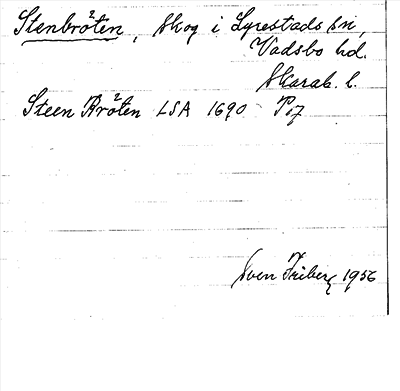 Stenbröten, skog i Lyrestads sn,
Vadsbo hd.
Skarab. l.
Steen Bröten LSA 1690
Sven Friberg 1956